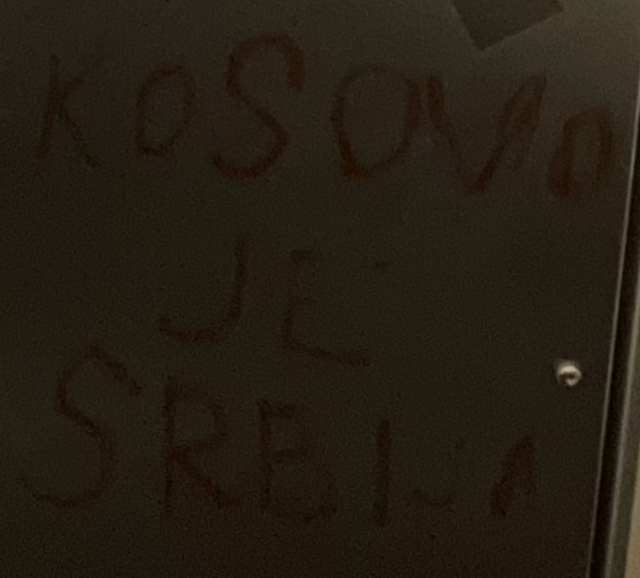 KOSOVO
JE
SRBIJA